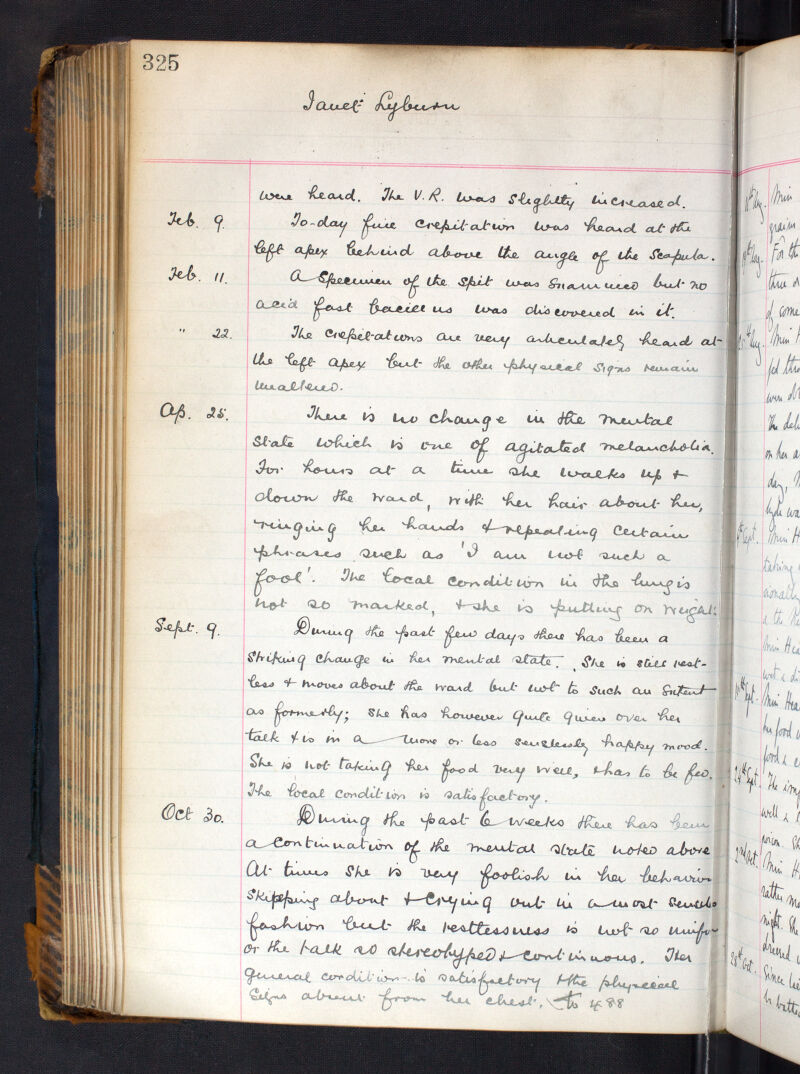 325
Janet Lyburn
were heard. The V.R. was slightly increased.
Feb. 9. To-day fine crepitation was heard at the
left apex behind above the angle of the Scapula.
Feb. 11. A specimen of the spit was examined but no
acid fast bacillus was discovered in it.
" 22. The crepitations are very articulately heard at
the left apex but the other physical signs remain
unaltered.
Ap. 25. There is no change in the mental
state which is one of agitated melancholia.
For hours at a time she walks up &
down the ward, with her hair about her,
ringing her hands & repeating certain
phrases such as 'I am not such a
fool'. The local condition in the lung is
not so marked, & she is putting on weight.
Sept. 9. During the past few days there has been a
striking change in her mental state. She is still rest-
less & moves about the ward but not to such an extent
as formerly; she has however quite given over her
talk & is in a more or less senselessly happy mood.
She is not taking her food very well, & has to be fed.
The local condition is satisfactory.
Oct 30. During the past 6 weeks there has been
a continuation of the mental state noted above
At times she is very foolish in her behavior
skipping about & crying out in a most senseless
fashion but the restlessness is not so unifor
or the talk so stereotyped & continuous. Her
general condition is satisfactory & the physical
signs absent from her chest. To 488